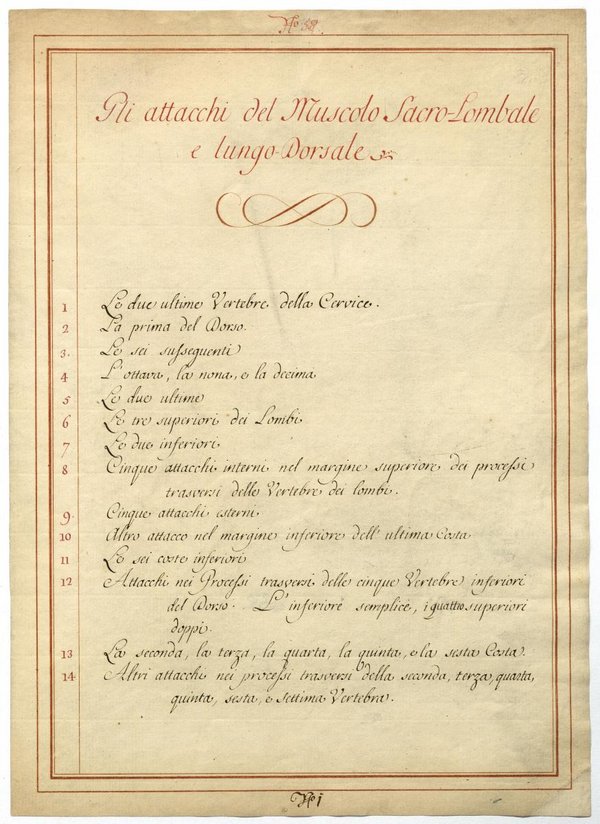 No. 58.
Gli attacchi del Muscolo Sacro-Lombale
e lungo-Dorsale
1 Le due ultime Vertebre della Cervice.
2 La prima del Dorso.
3. Le sei susseguenti
4 L'ottava, la nona, e la decima
5 Le due ultime
6 Le tre superiori dei Lombi
7 Le due inferiori
8 Cinque attacchi interni nel margine superiore dei processi
trasversi delle Vertebre dei lombi.
9. Cinque attacchi esterni
10 Altro attacco nel margine inferiore dell'ultima Costa
11 Le sei coste inferiori
12 Attacchi nei Processi trasversi delle cinque Vertebre inferiori
del Dorso. L'inferiore semplice, i quattro superiori
doppi.
13 La seconda, la terza, la quarta, la quinta, e la sesta Costa.
14 Altri attacchi nei processi trasversi della seconda, terza, quarta,
quinta, sesta, e settima Vertebra.
No 1